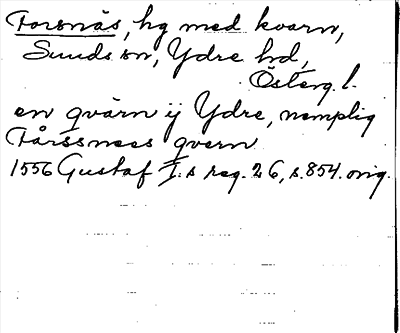 Forsnäs, hg med kvarn,
Sunds sn, Ydre hd,
Österg. l.
en qvärn ij Ydre, nemplig
Fårssnees qvern
1556 Gustaf I.s reg. 26, s. 854. orig.